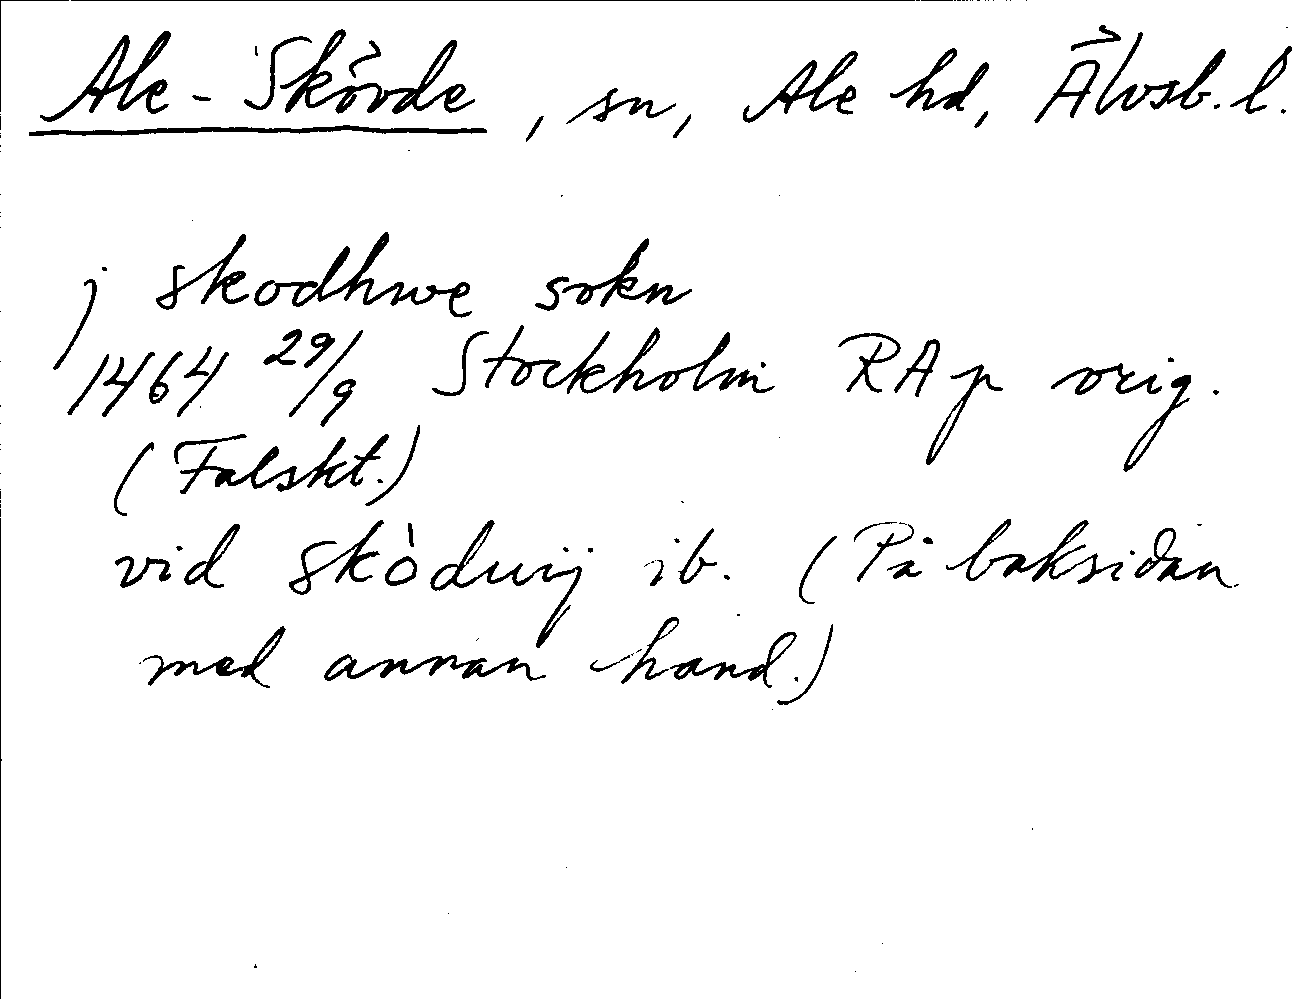 Ale-Skövde, sn, Ale hd, Älvsb. l.
j skodhwe sokn
1464 29/9 Stockholm RAp orig.
(Falskt.)
vid skòdwij ib. (På baksidan
med annan hand.)